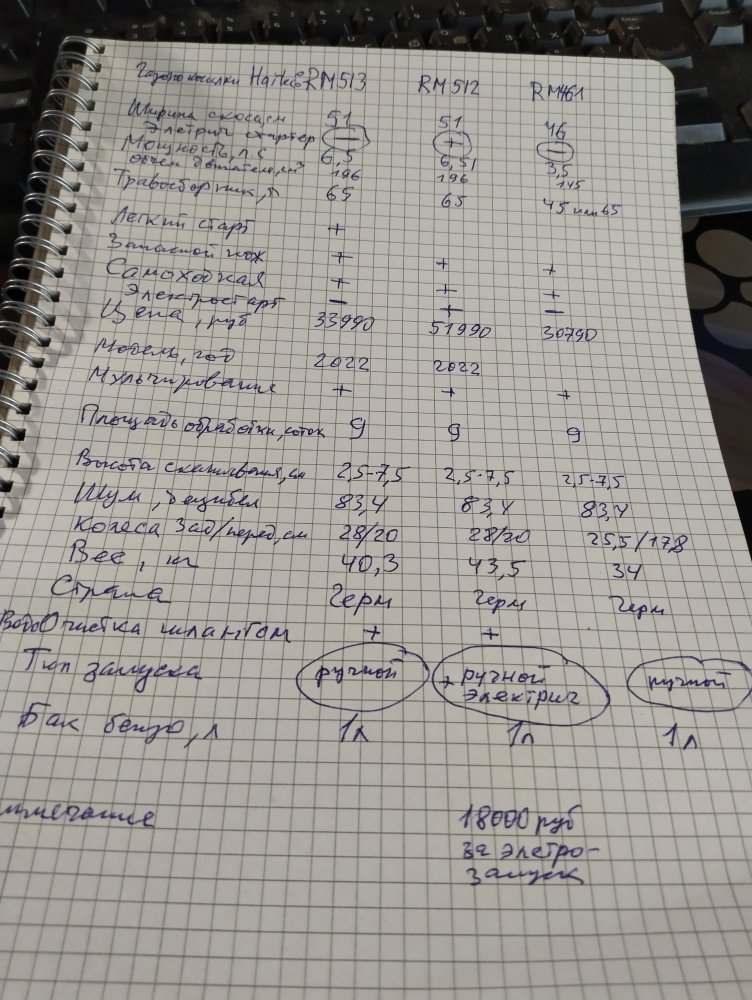 Газонокосилки RM513 RM512 RM461
Ширина скоса, см 51 51 46
Элетрич стартер — + —
Мощность, л.с 6,5 6,51 3,5
объем двигателя, см³ 196 196 145
Травосборник, л 65 65 45 или 65
Легкий старт +
Запасной нож + + +
Самоходная + + +
Электростарт — + —
Цена, руб 33990 51990 30790
Модель, год 2022 2022
Мульчирование + + +
Площадь обработки, соток 9 9 9
Высота скашивания, см 2,5-7,5 2,5-7,5 2,5-7,5
Шум, децибел 83,4 83,4 83,4
Колеса Зад/перед, см 28/20 28/20 25,5/17,8
Вес, кг 40,3 43,5 34
Страна Герм Герм Герм
ВодоОчистка шлангом + +
Тип запуска ручной + ручной электрич ручной
Бак бензо, л 1л 1л 1л
имечание 18000 руб
за элетро-
запуск